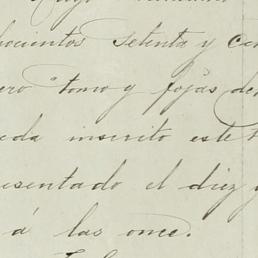 hocientos setenta y cin
ero tomo y fojas del
eda inscrito este t
esentado el diez y
á las once.